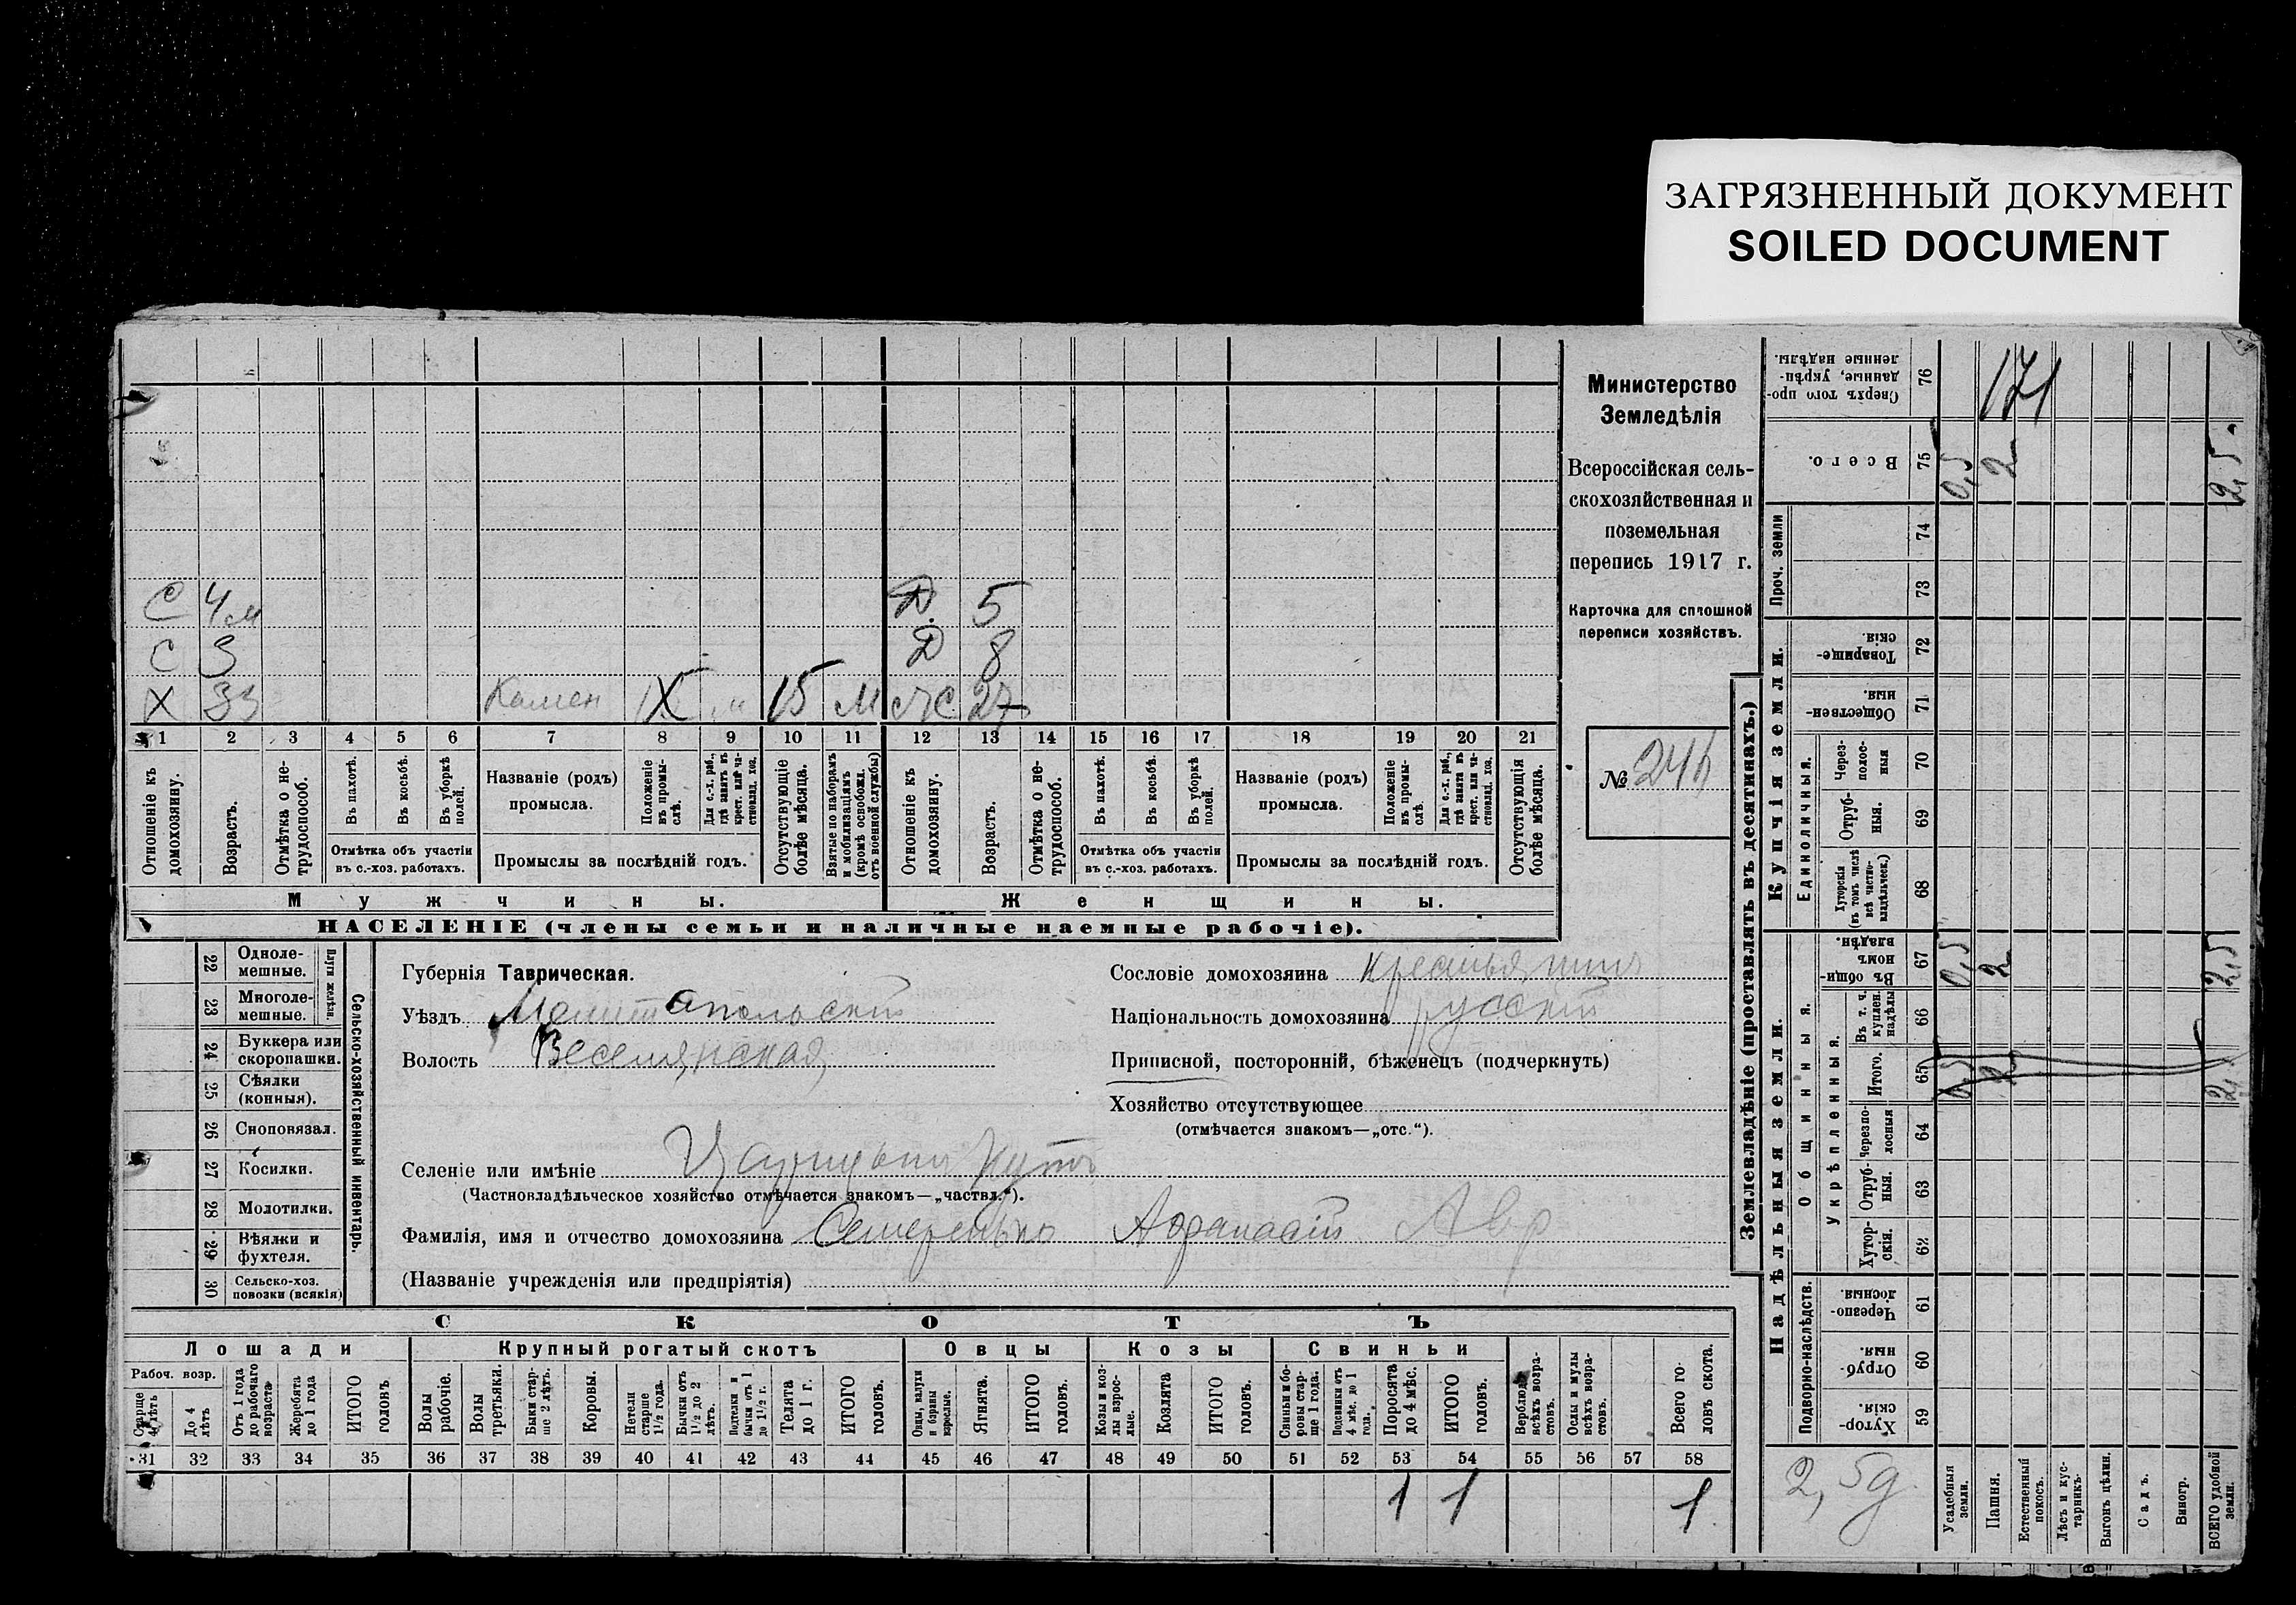 ЗАГРЯЗНЕННЫЙ ДОКУМЕНТ
SOILED DOCUMENT
Министерство
Земледѣлія
Всероссійская сель-
скохозяйственная и
поземельная
перепись 1917 г.
Карточка для сплошной
переписи хозяйствъ.
№ 24
С 4 м Д. 5
С 3 Д 8
Х 33 Камен IX 15 М Ж 27
1 2 3 4 5 6 7 8 9 10 11 12 13 14 15 16 17 18 19 20 21
Отношеніе къ домохозяину.
Возрастъ.
Отмѣтка о не-трудоспособ.
Въ пахотѣ.
Въ косьбѣ.
Въ уборкѣ полей.
Отмѣтка объ участіи въ с.-хоз. работахъ.
Названіе (родъ) промысла.
Положеніе въ промы-слѣ.
Для с.-х. раб., гдѣ занятъ въ крест. или ча-стновлад. хоз.
Промыслы за послѣдній годъ.
Отсутствующіе болѣе мѣсяца.
Взятые по наборамъ и мобилизаціямъ (кромѣ освобожд. отъ военной службы)
Отношеніе къ домохозяину.
Возрастъ.
Отмѣтка о не-трудоспособ.
Въ пахотѣ.
Въ косьбѣ.
Въ уборкѣ полей.
Отмѣтка объ участіи въ с.-хоз. работахъ.
Названіе (родъ) промысла.
Положеніе въ промы-слѣ.
Для с.-х. раб., гдѣ занята въ крест. или ча-стновлад. хоз.
Промыслы за послѣдній годъ.
Отсутствующія болѣе мѣсяца.
Мужчины. Женщины.
НАСЕЛЕНІЕ (члены семьи и наличные наемные рабочіе).
Сельско-хозяйственный инвентарь.
Плуги желѣзн.
22 Одноле-мешные.
23 Многоле-мешные.
24 Буккера или скоропашки.
25 Сѣялки (конныя).
26 Сноповязал.
27 Косилки.
28 Молотилки.
29 Вѣялки и фухтеля.
30 Сельско-хоз. повозки (всякія)
Губернія Таврическая.
Уѣздъ Мелитопольскій
Волость Веселянская
Сословіе домохозяина крестьянинъ
Національность домохозяина русскій
Приписной, посторонній, бѣженецъ (подчеркнуть)
Хозяйство отсутствующее
(отмѣчается знакомъ—„отс.“).
Селеніе или имѣніе Царицынъ Кутъ
(Частновладѣльческое хозяйство отмѣчается знакомъ—„частвл.“).
Фамилія, имя и отчество домохозяина Семеренько Афанасій Авр
(Названіе учрежденія или предпріятія)
СКОТЪ
Лошади Крупный рогатый скотъ Овцы Козы Свиньи
Рабоч. возр.
Старше 4 лѣтъ
До 4 лѣтъ
Отъ 1 года до рабочаго возраста
Жеребята до 1 года
ИТОГО головъ
Волы рабочіе.
Волы третьяки.
Быки стар-ше 2 лѣтъ.
Коровы.
Нетели старше 1½ года.
Бычки отъ 1½ до 2 лѣтъ.
Подтелки и бычки отъ 1 до 1½ г.
Телята до 1 г.
ИТОГО головъ.
Овцы, валухи и бараны взрослые.
Ягнята.
ИТОГО головъ.
Козы и коз-лы взрос-лые.
Козлята
ИТОГО головъ.
Свиньи и бо-ровы стар-ше 1 года.
Подсвинки отъ 4 мѣс. до 1 года.
Поросята до 4 мѣс.
ИТОГО головъ.
Верблюды всѣхъ возра-стовъ.
Ослы и мулы всѣхъ возра-стовъ.
Всего го-ловъ скота.
31 32 33 34 35 36 37 38 39 40 41 42 43 44 45 46 47 48 49 50 51 52 53 54 55 56 57 58
1 1 1
Землевладѣніе (проставлять въ десятинахъ.)
Купчія земли.
Надѣльныя земли.
Сверхъ того про-данные, укрѣп-ленные надѣлы. 76 171
Всего. 75 0,5 2 2,5
Проч. земли 74
73
Товарище-скія. 72
Обществен-ныя. 71
Единоличныя.
Через-полос-ныя 70
Отруб-ныя. 69
Хуторскія (въ томъ числѣ всѣ частно-владѣльческ.) 68
Общинныя.
Въ общин-номъ владѣн. 67 0,5 2 2,5
Укрѣпленныя.
Въ т. ч. куплен. надѣлы 66
Итого. 65
Черезпо-лосныя 64
Отруб-ныя. 63
Хутор-скія. 62
Подворно-наслѣдств.
Черезпо-лосныя. 61
Отруб-ныя. 60
Хутор-скія. 59
2,5 д
Усадебныя земли.
Пашня.
Естественный покосъ.
Лѣсъ и кус-тарникъ.
Выгонъ цѣлин.
Садъ.
Виногр.
ВСЕГО удобной земли.